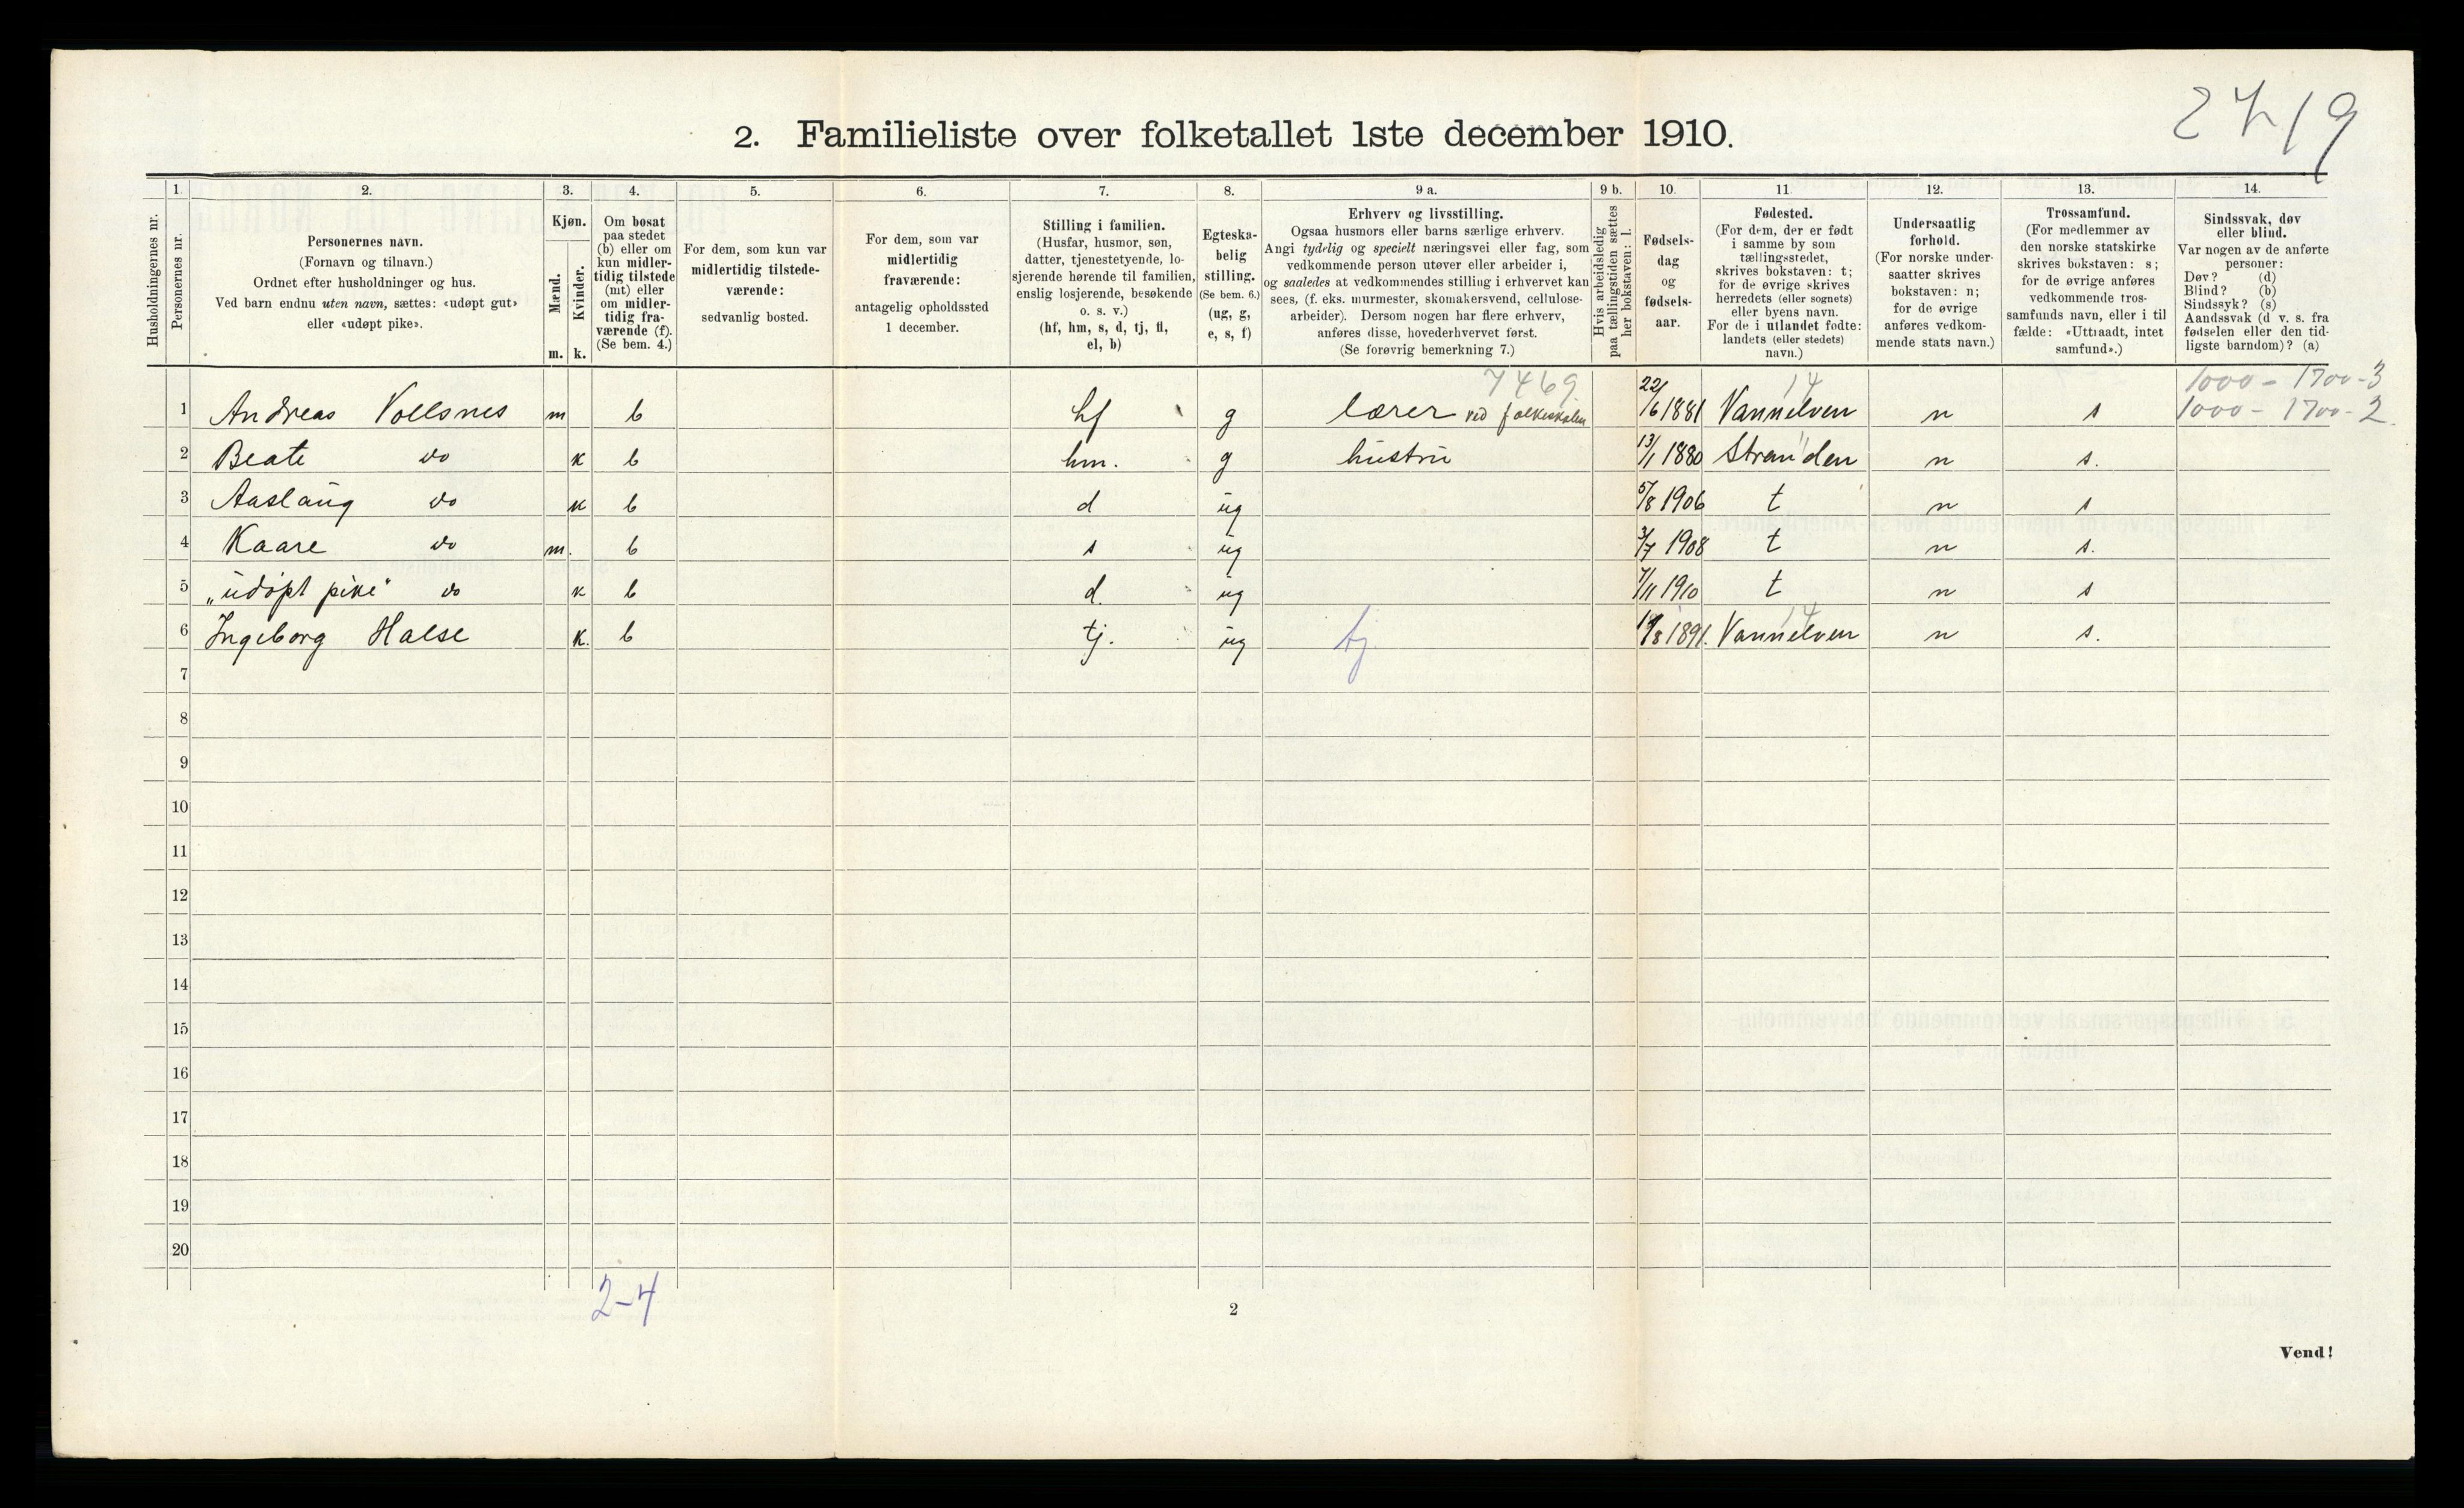 2719
2. Familieliste over folketallet 1ste december 1910.
Husholdningernes nr.
1.
Personernes nr.
2.
Personernes navn.
(Fornavn og tilnavn.)
Ordnet efter husholdninger og hus.
Ved barn endnu uten navn, sættes: «udøpt gut»
eller «udøpt pike».
3.
Kjøn.
Mænd.
m.
Kvinder.
k.
4.
Om bosat
paa stedet
(b) eller om
kun midler-
tidig tilstede
(mt) eller
om midler-
tidig fra-
værende (f).
(Se bem. 4.)
5.
For dem, som kun var
midlertidig tilstede-
værende:
sedvanlig bosted.
6.
For dem, som var
midlertidig
fraværende:
antagelig opholdssted
1 december.
7.
Stilling i familien.
(Husfar, husmor, søn,
datter, tjenestetyende, lo-
sjerende hørende til familien,
enslig losjerende, besøkende
o. s. v.)
(hf, hm, s, d, tj, fl,
el, b)
8.
Egteska-
belig
stilling.
(Se bem. 6.)
(ug, g,
e, s, f)
9 a.
Erhverv og livsstilling.
Ogsaa husmors eller barns særlige erhverv.
Angi tydelig og specielt næringsvei eller fag, som
vedkommende person utøver eller arbeider i,
og saaledes at vedkommendes stilling i erhvervet kan
sees, (f. eks. murmester, skomakersvend, cellulose-
arbeider). Dersom nogen har flere erhverv,
anføres disse, hovederhvervet først.
(Se forøvrig bemerkning 7.)
9 b.
Hvis arbeidsledig
paa tællingstiden sættes
her bokstaven: l.
10.
Fødsels-
dag
og
fødsels-
aar.
11.
Fødested.
(For dem, der er født
i samme by som
tællingsstedet,
skrives bokstaven: t;
for de øvrige skrives
herredets (eller sognets)
eller byens navn.
For de i utlandet fødte:
landets (eller stedets)
navn.)
12.
Undersaatlig
forhold.
(For norske under-
saatter skrives
bokstaven: n;
for de øvrige
anføres vedkom-
mende stats navn.)
13.
Trossamfund.
(For medlemmer av
den norske statskirke
skrives bokstaven: s;
for de øvrige anføres
vedkommende tros-
samfunds navn, eller i til
fælde: «Uttraadt, intet
samfund».)
14.
Sindssvak, døv
eller blind.
Var nogen av de anførte
personer:
Døv? (d)
Blind? (b)
Sindssyk? (s)
Aandssvak (d. v. s. fra
fødselen eller den tid-
ligste barndom)? (a)
7469 14 1000 - 1700 - 3
1 Andreas Vollsnes m b hf g lærer ved folkeskolen 22/6 1881 Vannelven n s 1000 - 1700 - 2
2 Beate do k b hm. g hustru 13/1 1880 Stranden n s.
3 Aaslaug do k b d ug 5/8 1906 t n s
4 Kaare do m. b s ug 3/7 1908 t n s.
5 „udøpt pike" do k b d. ug 7/11 1910 t n s
14
6 Ingeborg Halse k. b tj. ug tj. 19/8 1891. Vannelven n s.
7
8
9
10
11
12
13
14
15
16
17
18
19
20
2-4
2
Vend!